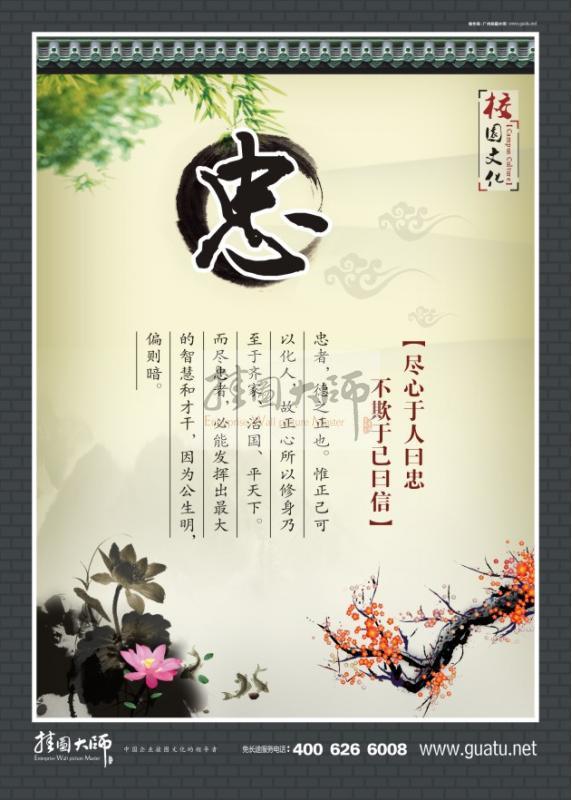 校园文化
【Campus Culture】
忠
【尽心于人曰忠
不欺于己曰信】
忠者，德之正也。惟正己可
以化人，故正心所以修身乃
至于齐家、治国、平天下。
而尽忠者，必能发挥出最大
的智慧和才干，因为公生明，
偏则暗。
挂图大师
Enterprise Wall picture Master
挂图大师
Enterprise Wall picture Master
中国企业挂图文化的领导者
免长途服务电话：400 626 6008
www.guatu.net